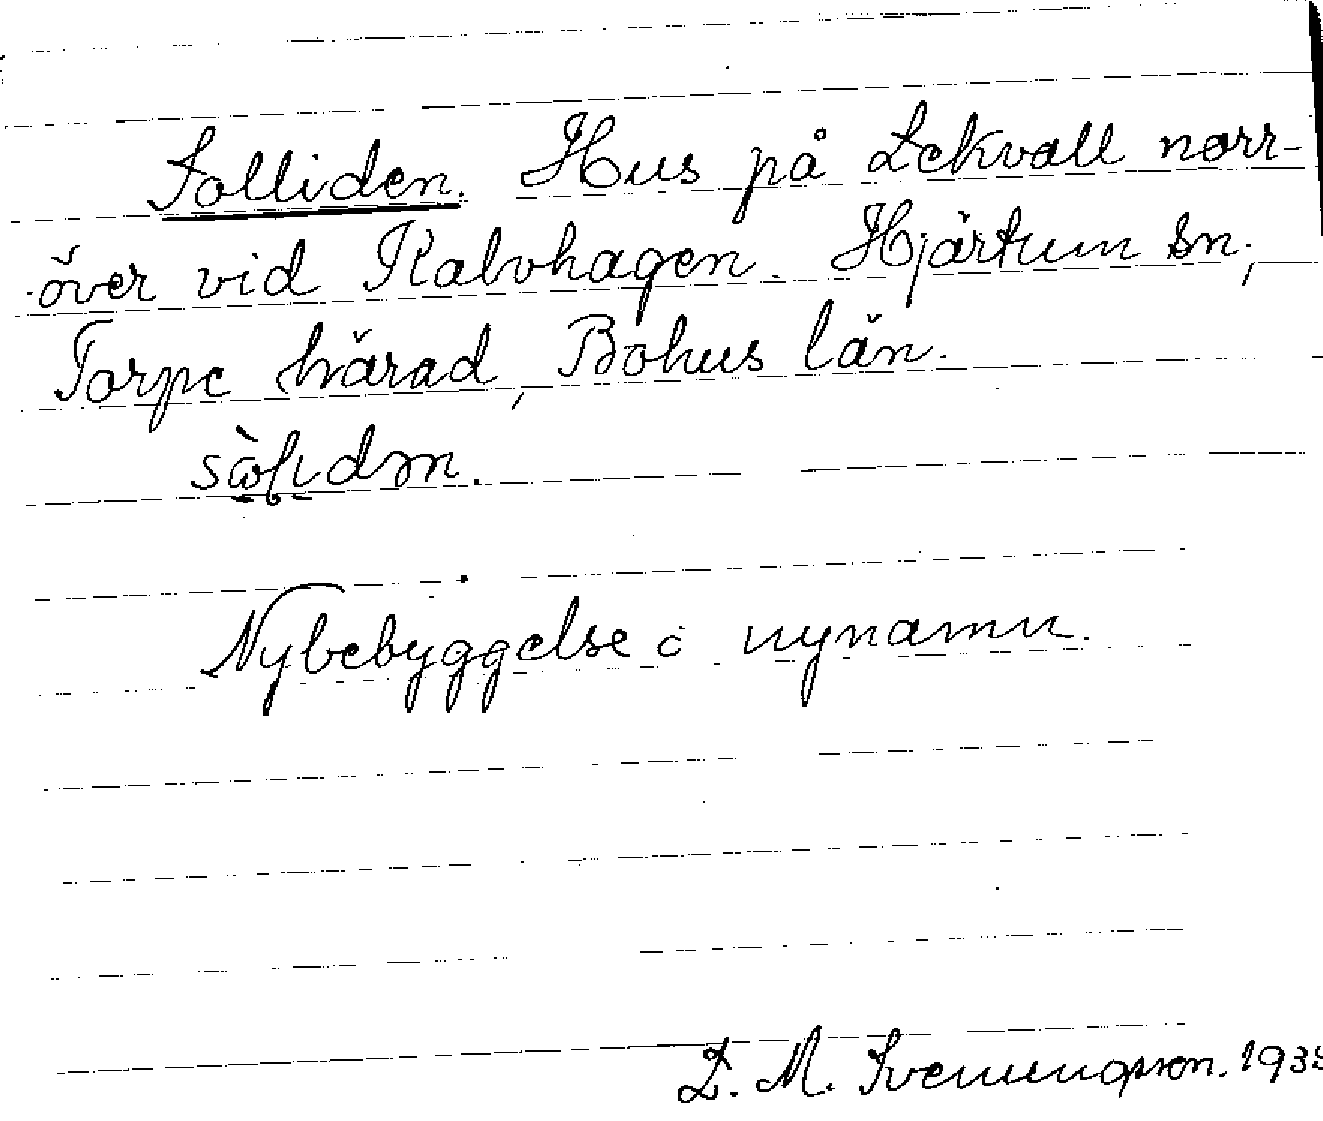 Solliden. Hus på Lekvall norr-
över vid Kalvhagen. Hjärtum sn,
Torpe härad, Bohus län.
Nybebyggelse o nynamn.
D. M. Svenungsson. 193